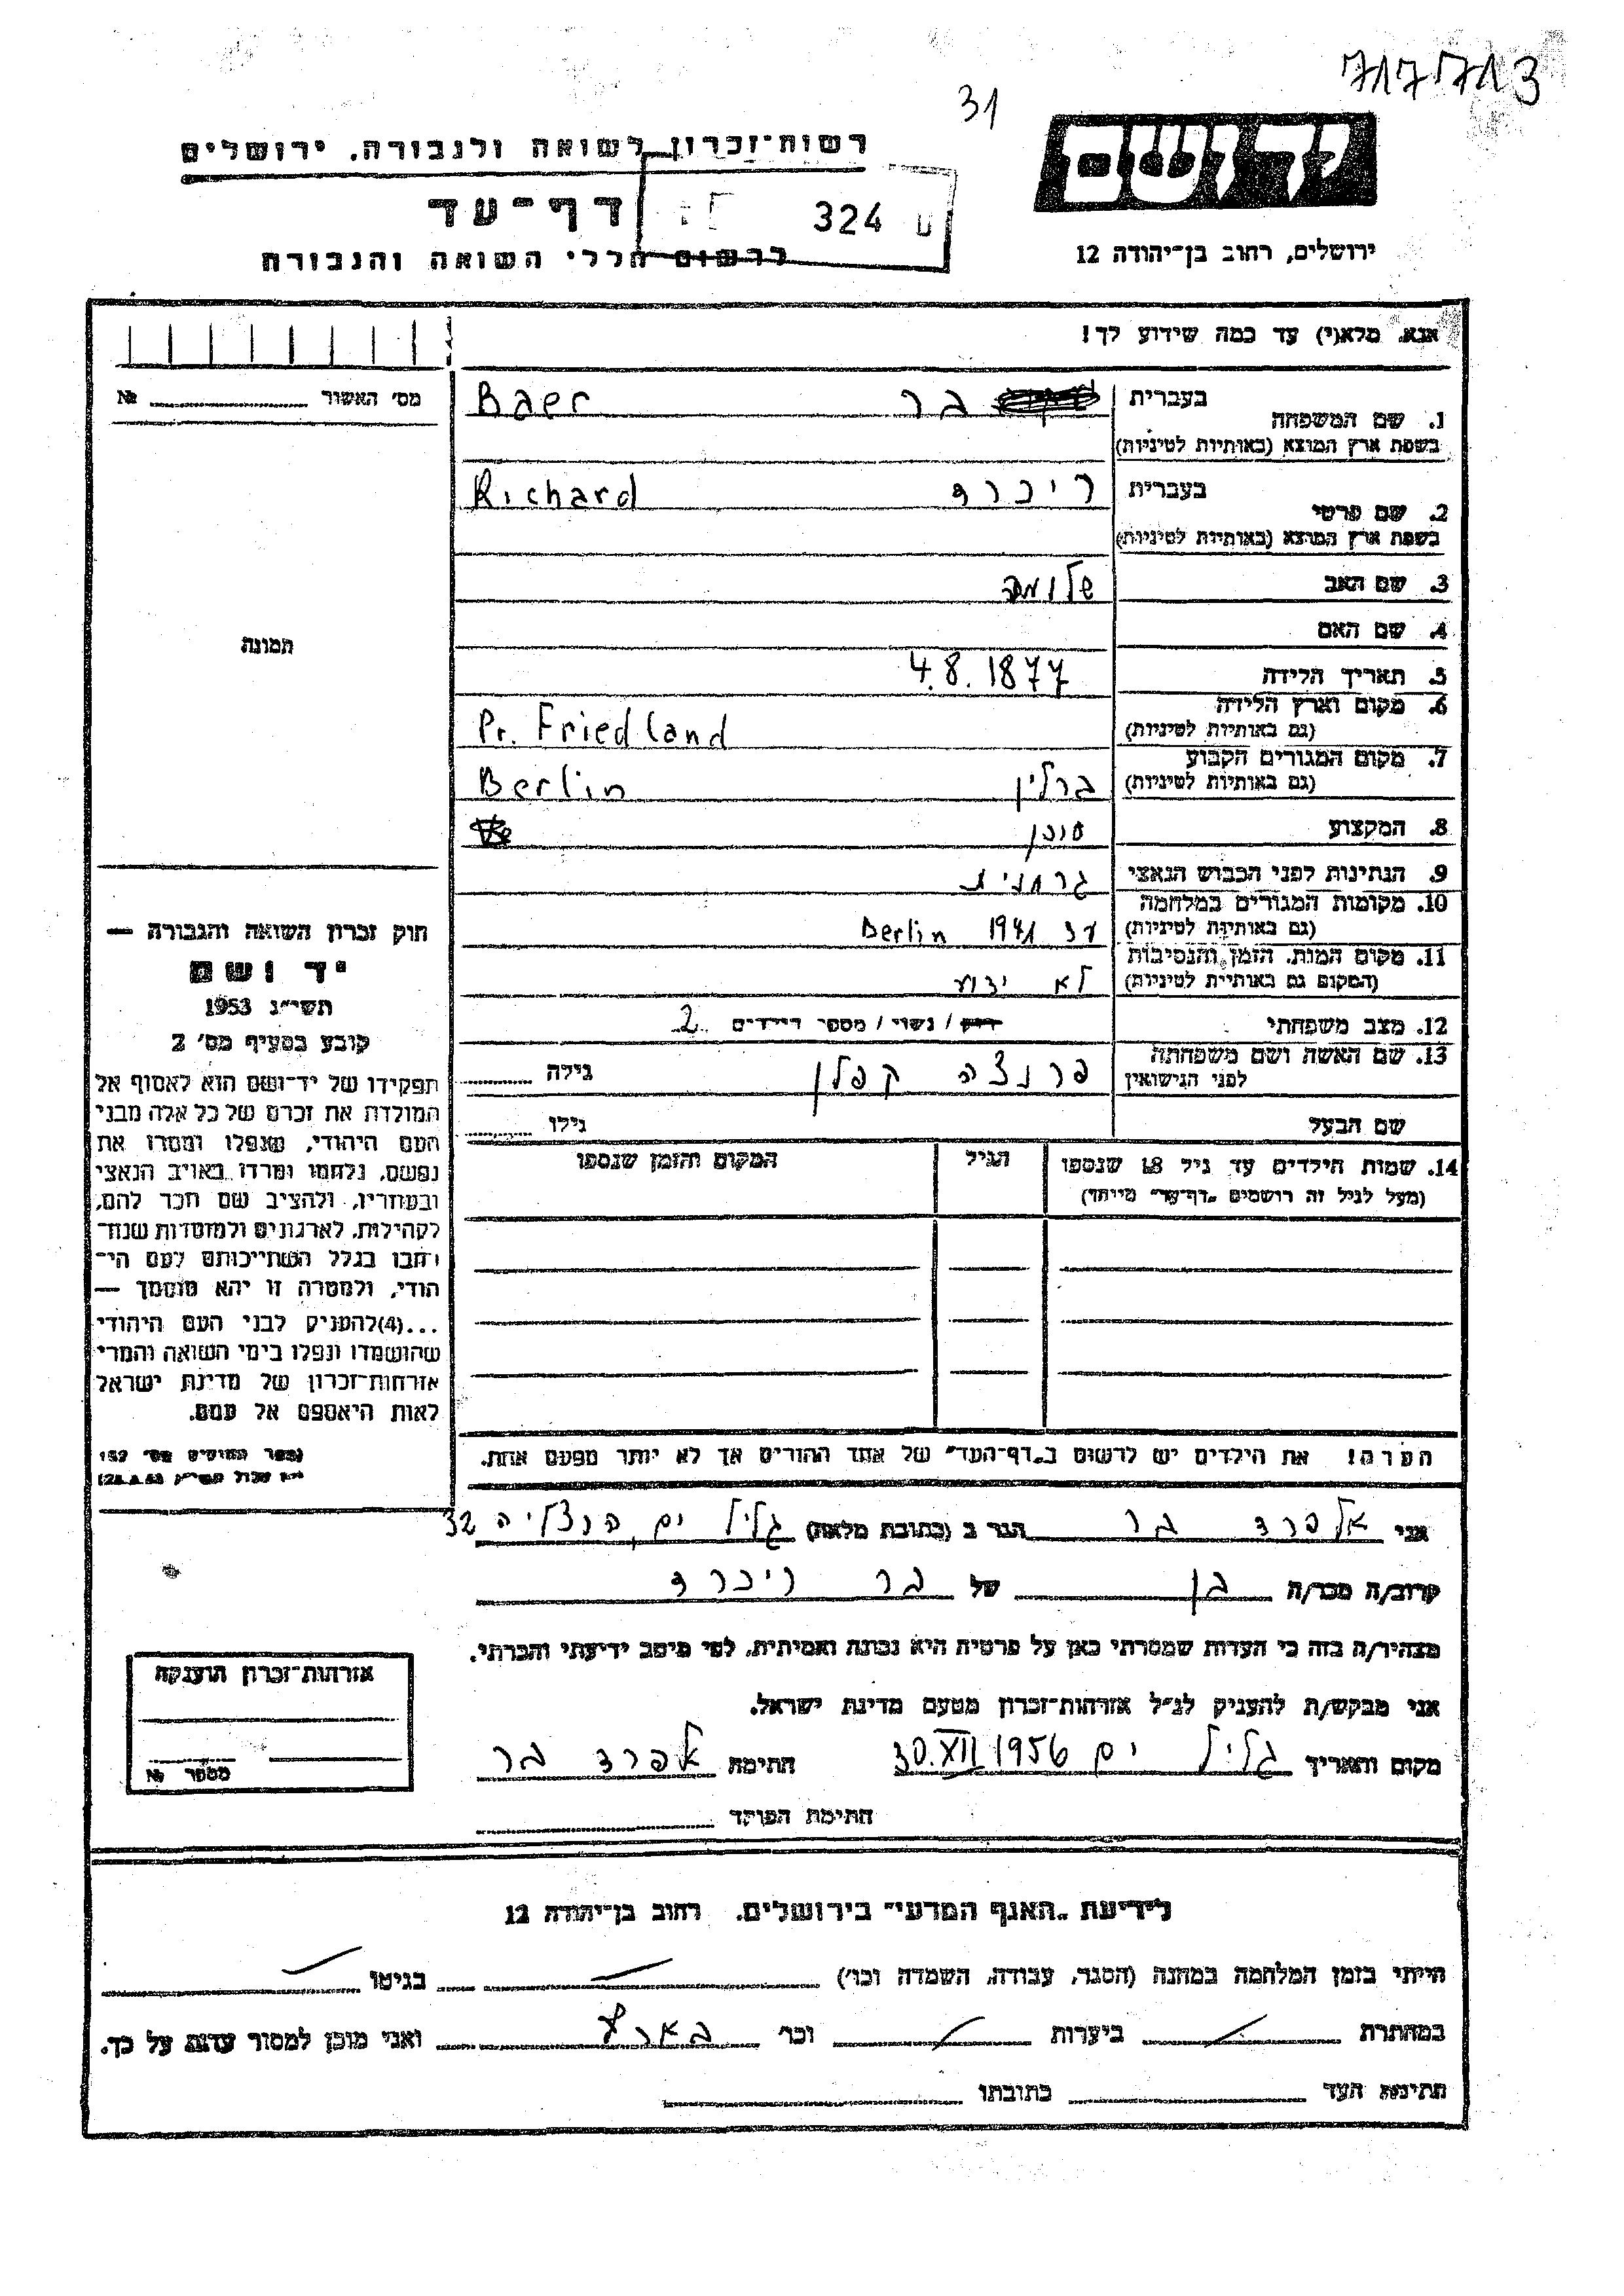 717713
31
יד ושם
רשות-זכרון לשואה ולגבורה, ירושלים
דף-עד
324
ירושלים, רחוב בן-יהודה 12
לרשום חללי השואה והגבורה
אנא, מלא(י) עד כמה שידוע לך!
מס׳ האשור №
1. שם המשפחה בעברית בר Baer
בשפת ארץ המוצא (באותיות לטיניות)
2. שם פרטי בעברית ריכרד Richard
בשפת ארץ המוצא (באותיות לטיניות)
3. שם האב שלומה
4. שם האם
תמונה
5. תאריך הלידה 4.8.1877
6. מקום וארץ הלידה
(גם באותיות לטיניות) Pr. Friedland
7. מקום המגורים הקבוע
(גם באותיות לטיניות) ברלין Berlin
8. המקצוע סוכן
9. הנתינות לפני הכבוש הנאצי גרמנית
10. מקומות המגורים במלחמה
(גם באותיות לטיניות) עד 1941 Berlin
11. מקום המות, הזמן והנסיבות
(המקום גם באותיות לטיניות) לא ידוע
12. מצב משפחתי רווק / נשוי / מספר הילדים 2
13. שם האשה ושם משפחתה
לפני הנישואין פרנצה קפלן גילה
שם הבעל גילו
14. שמות הילדים עד גיל 18 שנספו הגיל המקום והזמן שנספו
(מעל לגיל זה רושמים „דף-עד״ מיוחד)
חוק זכרון השואה והגבורה —
יד ושם
תשי״ג 1953
קובע בסעיף מס׳ 2
תפקידו של יד-ושם הוא לאסוף אל
המולדת את זכרם של כל אלה מבני
העם היהודי, שנפלו ומסרו את
נפשם, נלחמו ומרדו באויב הנאצי
ובעוזריו, ולהציב שם וזכר להם,
לקהילות, לארגונים ולמוסדות שנח-
רבו בגלל השתייכותם לעם הי-
הודי, ולמטרה זו יהא מוסמך —
...(4)להעניק לבני העם היהודי
שהושמדו ונפלו בימי השואה והמרי
אזרחות-זכרון של מדינת ישראל
לאות היאספם אל עמם.
הערה! את הילדים יש לרשום ב„דף-העד״ של אחד ההורים אך לא יותר מפעם אחת.
אני אלפרד בר הגר ב (כתובת מלאה) גליל ים, הרצליה 32
קרוב/ה מכר/ה בן של בר ריכרד
מצהיר/ה בזה כי העדות שמסרתי כאן על פרטיה היא נכונה ואמיתית, לפי מיטב ידיעתי והכרתי.
אני מבקש/ת להעניק לנ״ל אזרחות-זכרון מטעם מדינת ישראל.
מקום ותאריך גליל ים 30.XII.1956 חתימה אלפרד בר
חתימת הפוקד
אזרחות-זכרון הוענקה
מספר №
לידיעת „האגף המדעי״ בירושלים, רחוב בן-יהודה 12
הייתי בזמן המלחמה במחנה (הסגר, עבודה, השמדה וכו׳) — בגיטו —
במחתרת — ביערות — וכו׳ בארץ ואני מוכן למסור עדות על כך.
חתימת העד כתובתו